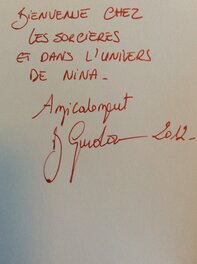 BIENVENUE CHEZ
LES SORCIÈRES
ET DANS L'UNIVERS
DE NINA.
Amicalement
2012